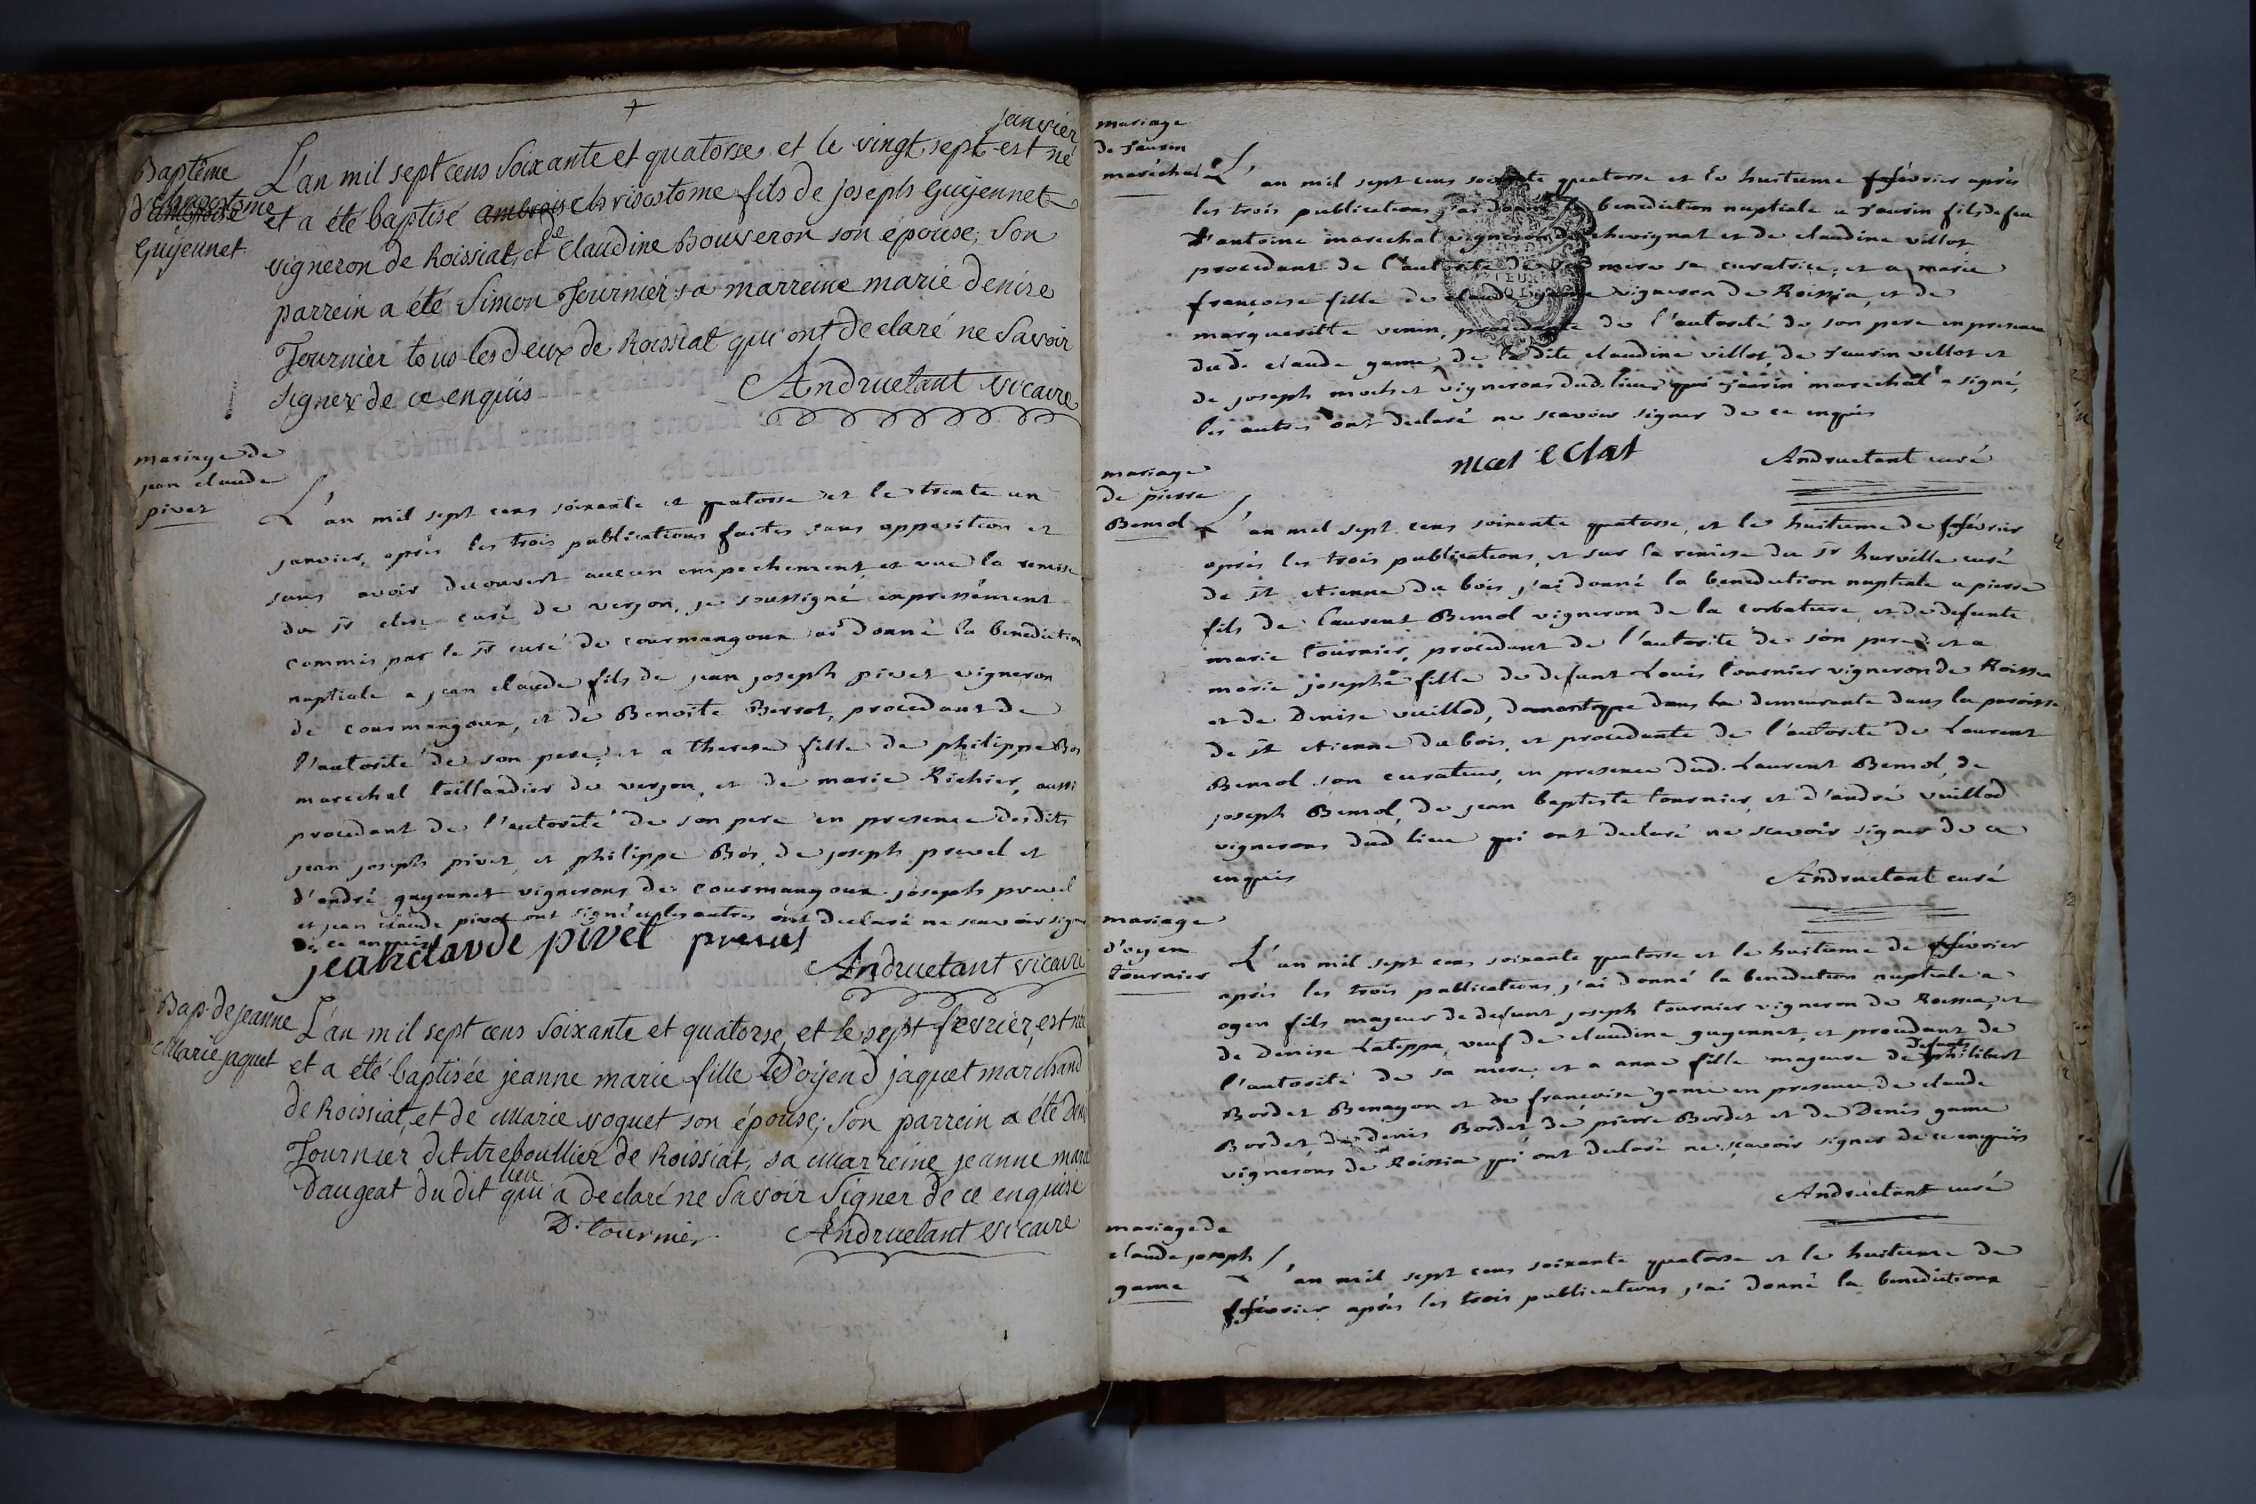 Baptême
d'ambroise chrisostome
Guyennet
janvier
L'an mil sept cens soixante et quatorse, et le vingt sept est né
et a été baptisé ambroise chrisostome fils de joseph Guyennet
vigneron de Roissiat, et de Claudine Bouveron son épouse, son
parrein a été Simon Tournier, sa marreine marie denise
Tournier tous les deux de Roissiat qui ont declaré ne Savoir
signer de ce enquis
Andruetant vicaire
mariage de
jean claude
pivet
L'an mil sept cens soixante et quatorse et le trente un
janvier, après les trois publications faites sans opposition et
sans avoir decouvert aucun empechement, et vue la remise
du Sr curé de verjon, je soussigné expressément
commis par le Sr curé de courmangoux ai donné la benediction
nuptiale a jean claude fils de jean joseph pivet vigneron
de courmangoux, et de Benoite Berrot, procedant de
l'autorité de son pere, et a therese fille de philippe Bos
marechal taillandier de verjon, et de marie Richier, aussi
procedant de l'autorité de son pere en presence desdits
jean joseph pivet, et philippe Bos, de joseph prevel et
d'andré guyennet vignerons de courmangoux. joseph prevel
et jean claude pivet ont signé et les autres ont declaré ne scavoir signer
de ce enquis
jean claude pivet prevel
Andruetant vicaire
Bap. de jeanne
Marie jaquet
L'an mil sept cens soixante et quatorse, et le sept fevrier, est née
et a été baptisée jeanne marie fille d'oyend jaquet marchand
de Roissiat, et de marie voguet son épouse; son parrein a été denis
Tournier dit treboullier de Roissiat, sa marreine jeanne marie
Daugeat du dit lieu qui a declaré ne Savoir Signer de ce enquise
D. tournier
Andruetant vicaire
mariage
de taurin
maréchal
L'an mil sept cens soixante quatorse et le huitieme février après
les trois publications j'ai donné la benediction nuptiale a taurin fils de feu
antoine marechal vigneron de chevignat et de claudine villot
procedant de l'autorité de sa mere sa curatrice, et a marie
françoise fille de claude game vigneron de Roissia, et de
marguerite venin, procedante de l'autorité de son pere en presence
dud. claude game, de la dite claudine villot, de taurin villot et
de joseph mochet vignerons dud. lieu, qui taurin marechal a signé,
les autres ont declaré ne scavoir signer de ce enquis
Andruetant curé
mariage
de pierre
Bemol
L'an mil sept cens soixante quatorse, et le huitieme de février
après les trois publications, et sur la remise du Sr hurville curé
de St etienne du bois, j'ai donné la benediction nuptiale a pierre
fils de laurent Bemol vigneron de la corbature, et de defunte
marie tournier, procedant de l'autorité de son pere, et a
marie josephe fille de defunt Louis tournier vigneron de Roissia
et de Denise vuillod, demeurante dans la paroisse
de St etienne du bois, et procedante de l'autorité de Laurent
Bemol son curateur, en presence dud. Laurent Bemol, de
joseph Bemol, de jean baptiste tournier, et d'andré vuillod
vignerons dud lieu qui ont declaré ne scavoir signer de ce
enquis
Andruetant curé
mariage
d'oyen
tournier
L'an mil sept cens soixante quatorse et le huitieme de février
après les trois publications j'ai donné la benediction nuptiale a
oyen fils majeur de defunt joseph tournier vigneron de Roissia, et
de Denise Lateppe, veuf de claudine guyennet, et procedant de
l'autorité de sa mere, et a anne fille majeure de defunt philibert
Bordet Benayon et de francoise game en presence de claude
Bordet, de denis Bordet de pierre Bordet et de Denis game
vignerons de Roissia qui ont declaré ne scavoir signer de ce enquis
Andruetant curé
mariage de
claude joseph
game
L'an mil sept cens soixante quatorse et le huitieme de
février après les trois publications j'ai donné la benediction